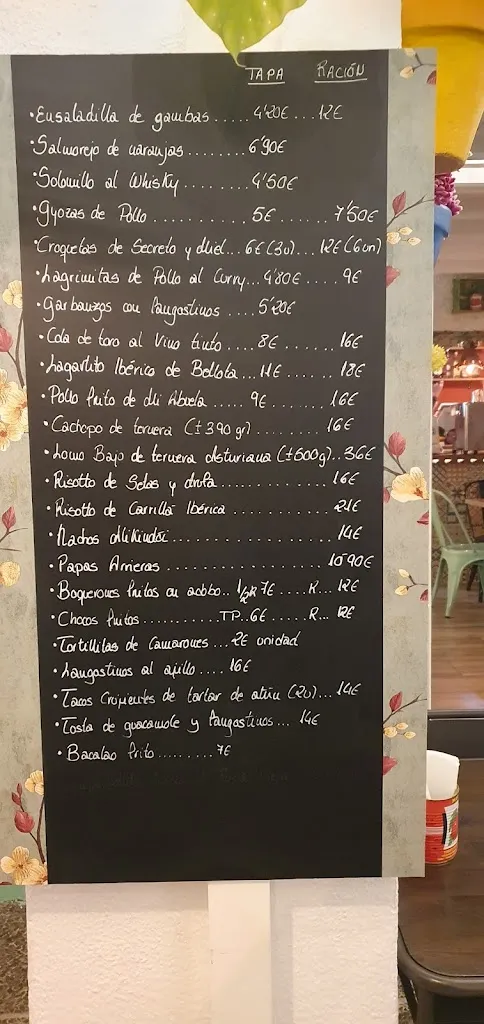 TAPA RACIÓN
·Ensaladilla de gambas.....4'20€...12€
·Salmorejo de naranjas........6'90€
·Solomillo al Whisky.......4'50€
·Gyozas de Pollo............5€......7'50€
·Croquetas de Secreto y Miel...6€(3u)...12€(6un)
·Lagrimitas de Pollo al Curry...4'80€.....9€
·Garbanzos con Langostinos....5'20€
·Cola de toro al Vino tinto.....8€.......16€
·Lagartito Ibérico de Bellota...11€......18€
·Pollo frito de Mi Abuela.....9€.......16€
·Cachopo de ternera (±390gr)..........16€
·Lomo Bajo de ternera Asturiana (±500g)..36€
·Risotto de Setas y trufa..............16€
·Risotto de Carrillá Ibérica............21€
·Nachos Mikindoi....................14€
·Papas Arrieras....................10'90€
·Boquerones fritos en adobo..1/2R 7€....R...12€
·Chocos fritos..........TP..6€.....R...12€
·Tortillitas de Camarones...2€ unidad
·Langostinos al ajillo....16€
·Tacos Crujientes de tartar de atún (2u)...14€
·Tosta de guacamole y Langostinos...14€
·Bacalao frito.........7€